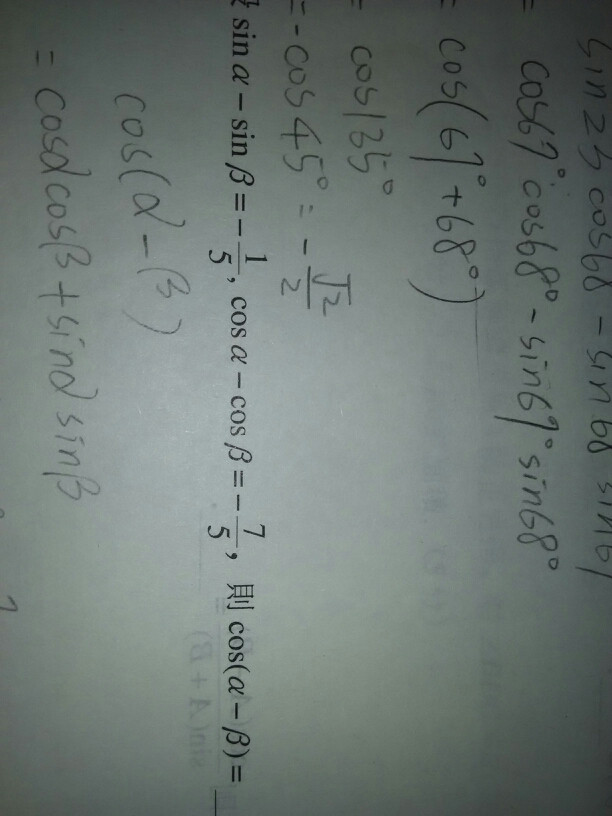 = cos67° cos68° - sin67° sin68°
= cos(67° + 68°)
= cos135°
= -cos45° = -√2/2
sin α − sin β = −1/5, cos α − cos β = −7/5, 則 cos(α − β) =
cos(α - β)
= cosα cosβ + sinα sinβ